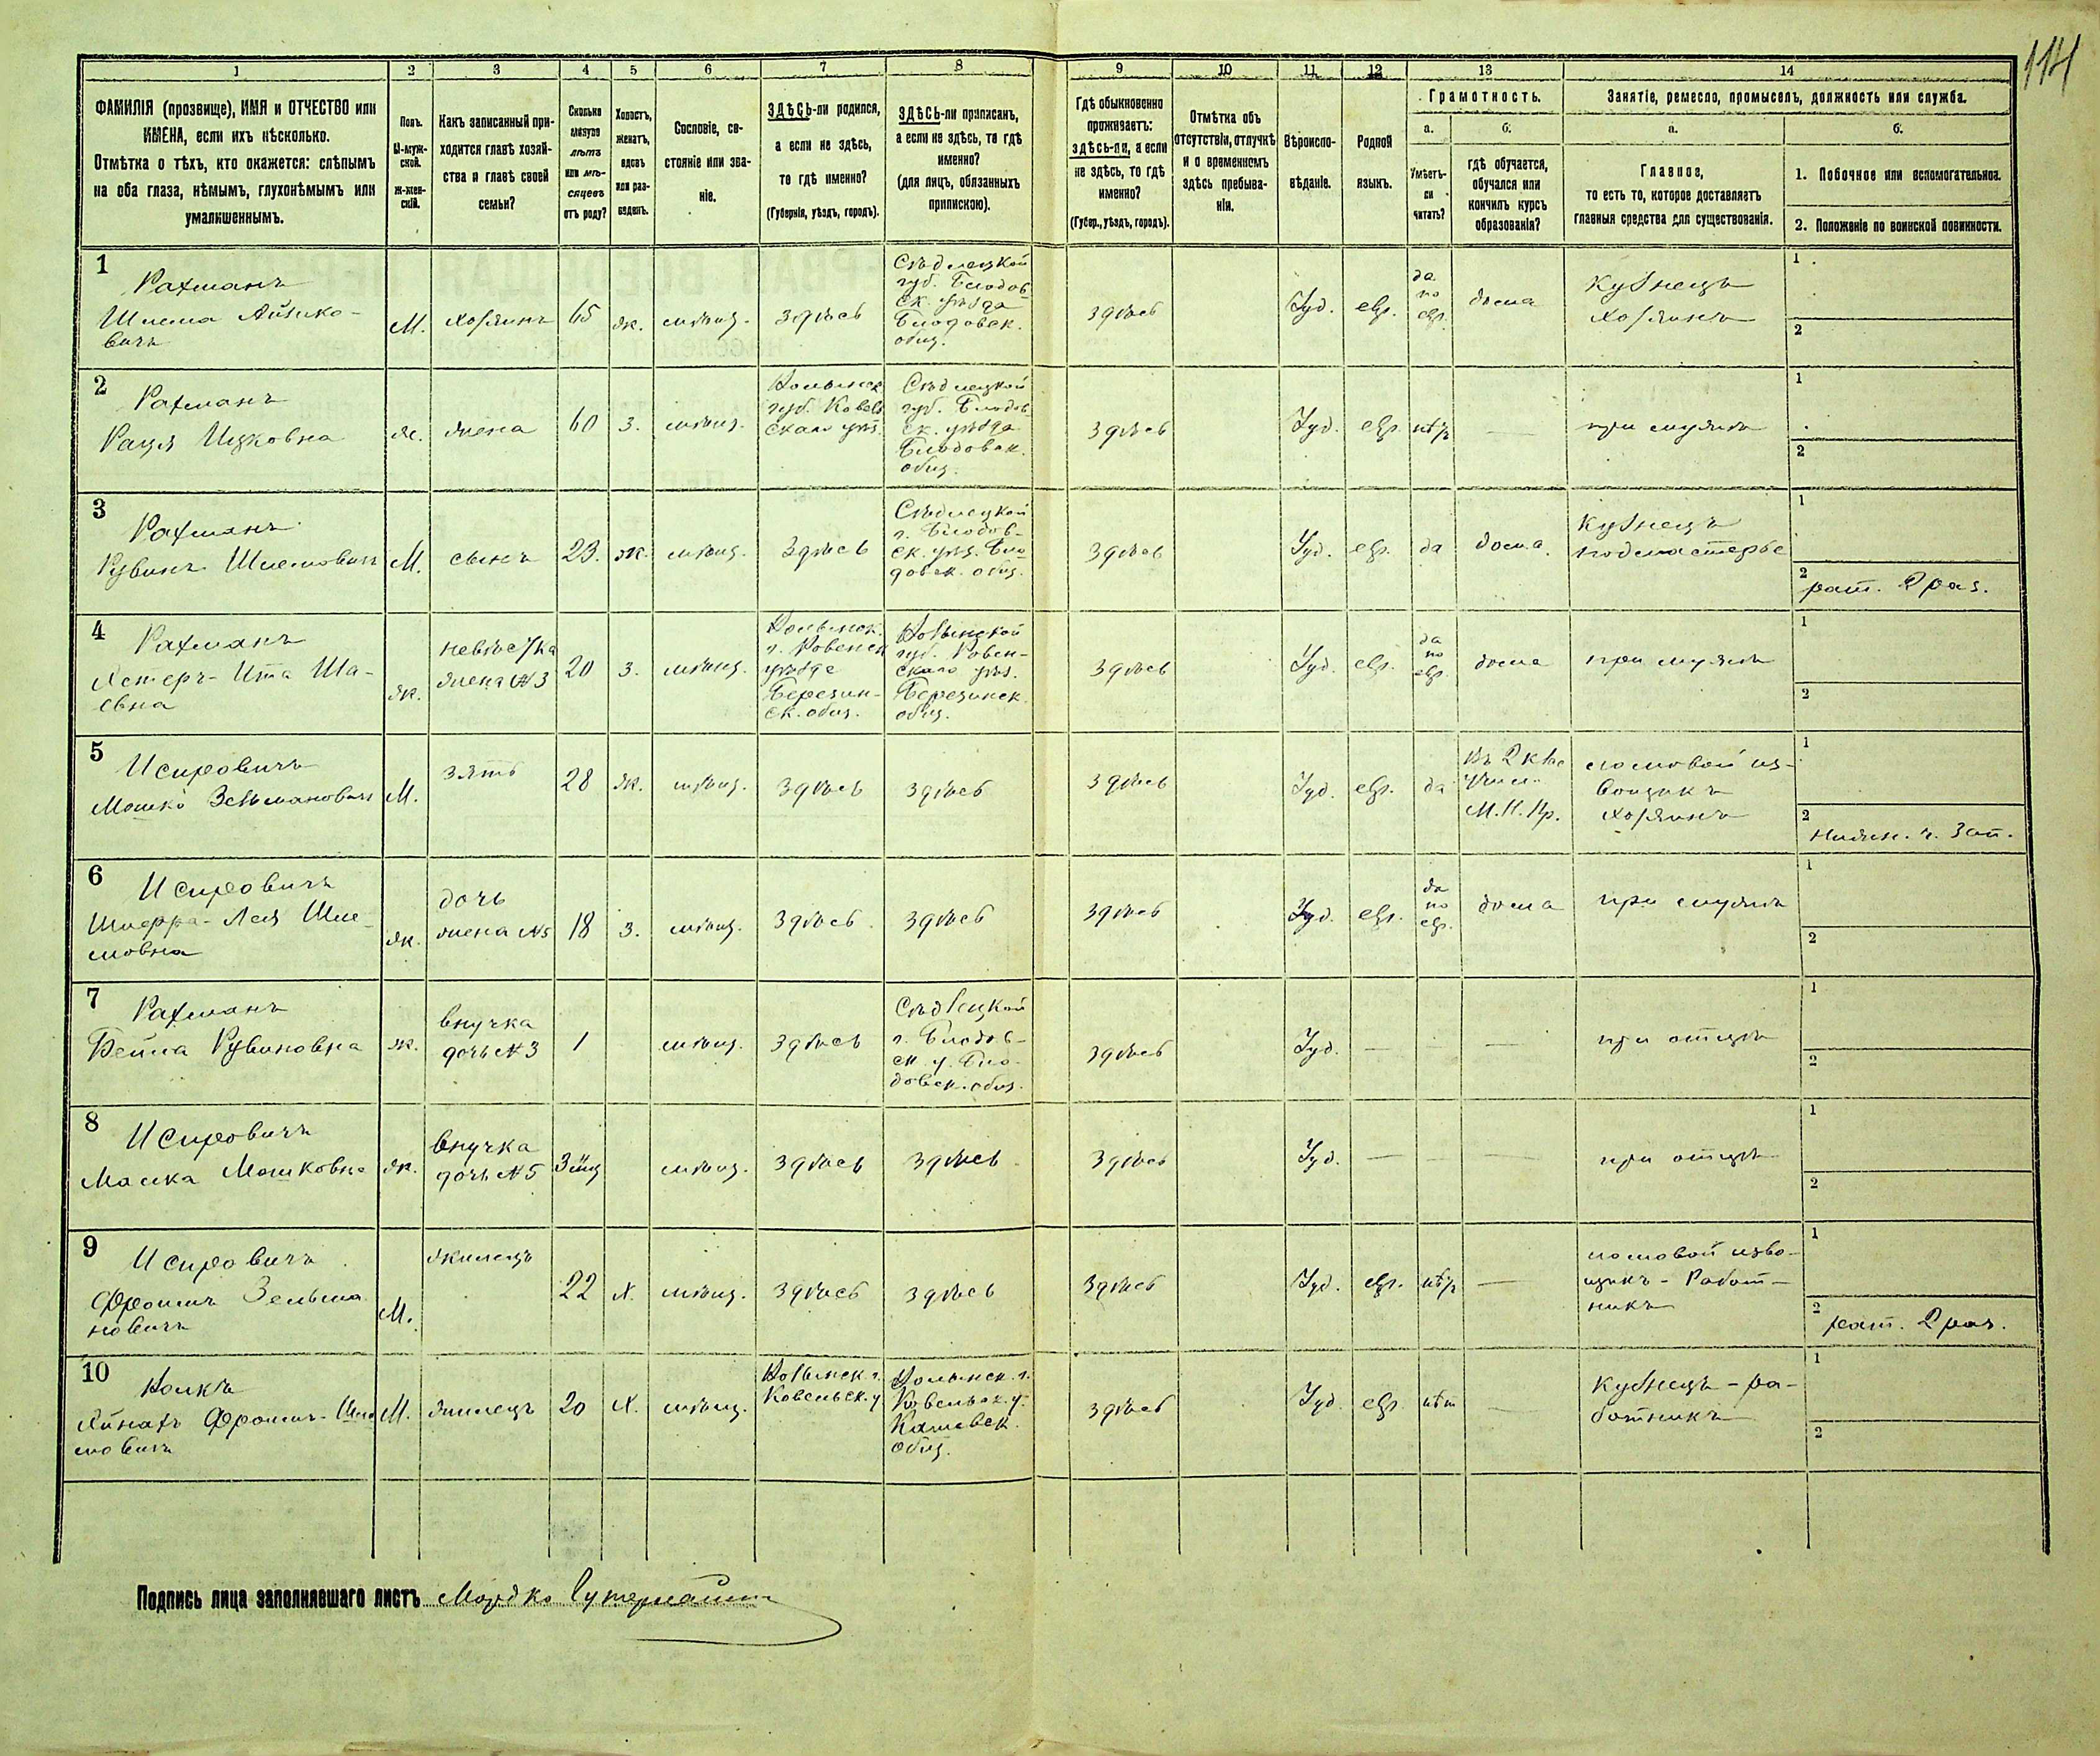 114
1 2 3 4 5 6 7 8 9 10 11 12 13 14
ФАМИЛІЯ (прозвище), ИМЯ и ОТЧЕСТВО или
ИМЕНА, если ихъ нѣсколько.
Отмѣтка о тѣхъ, кто окажется: слѣпымъ
на оба глаза, нѣмымъ, глухонѣмымъ или
умалишеннымъ.
Полъ.
М-муж-
ской.
Ж-жен-
скій.
Какъ записанный при-
ходится главѣ хозяй-
ства и главѣ своей
семьи?
Сколько
минуло
лѣтъ
или мѣ-
сяцевъ
отъ роду?
Холостъ,
женатъ,
вдовъ
или раз-
веденъ.
Сословіе, со-
стояніе или зва-
ніе.
ЗДѢСЬ-ли родился,
а если не здѣсь,
то гдѣ именно?
(Губернія, уѣздъ, городъ).
ЗДѢСЬ-ли приписанъ,
а если не здѣсь, то гдѣ
именно?
(для лицъ, обязанныхъ
припискою).
Гдѣ обыкновенно
проживаетъ:
здѣсь-ли, а если
не здѣсь, то гдѣ
именно?
(Губер., уѣздъ, городъ).
Отмѣтка объ
отсутствіи, отлучкѣ
и о временномъ
здѣсь пребыва-
ніи.
Вѣроиспо-
вѣданіе.
Родной
языкъ.
Грамотность.
а.
Умѣетъ-
ли
читать?
б.
гдѣ обучается,
обучался или
кончилъ курсъ
образованія?
Занятіе, ремесло, промыселъ, должность или служба.
а.
Главное,
то есть то, которое доставляетъ
главныя средства для существованія.
б.
1. Побочное или вспомогательное.
2. Положеніе по воинской повинности.
1
Рахманъ
Шлема Айзико-
вичъ
М.
хозяинъ
65
ж.
мѣщ.
здѣсь
Сѣдлецкой
губ. Влодов-
ск. уѣзда
Влодовск.
общ.
здѣсь
Іуд.
евр.
да
по
евр.
дома
Кузнецъ
хозяинъ
1
2
2
Рахманъ
Ицковна
ж.
жена
60
з.
мѣщ.
Волынск.
губ. Ковель
скаго уѣз.
Сѣдлецкой
губ. Влодов-
ск. уѣзда
Влодовск.
общ.
здѣсь
Іуд.
евр.
нѣтъ
—
при мужѣ
1
2
3
Рахманъ
Рувинъ Шлемовичъ
М.
сынъ
23.
ж.
мѣщ.
здѣсь
Сѣдлецкой
г. Влодов-
ск. уѣз. Вло
довск. общ.
здѣсь
Іуд.
евр.
да
дома.
Кузнецъ
подмастерье
1
2
рат. 2 раз.
4
Рахманъ
Эстеръ-Ита Ша-
евна
ж.
невѣстка
жена №3
20
з.
мѣщ.
Волынск.
г. Ровенск
уѣзде
Березин-
ск. общ.
Волынской
губ. Ровен-
скаго уѣз.
Березинск.
общ.
здѣсь
Іуд.
евр.
да
по
евр.
дома
при мужѣ
1
2
5
Мошко Зельмановичъ
М.
зять
28
ж.
мѣщ.
здѣсь
здѣсь
здѣсь
Іуд.
евр.
да
Въ 2 кл
учил.
М.Н.Пр.
ломовой из-
вощикъ
хозяинъ
1
2
нижн. ч. Зап.
6
Лея Шле-
мовна
ж.
дочь
жена №5
18
з.
мѣщ.
здѣсь
здѣсь
здѣсь
Іуд.
евр.
да
по
евр.
дома
при мужѣ
1
2
7
Рахманъ
Бейла Рувиновна
ж.
внучка
дочь №3
1
мѣщ.
здѣсь
Сѣдлецкой
г. Влодов-
ск. у. Вло-
довск. общ.
здѣсь
Іуд.
—
—
при отцѣ
1
2
8
Малка Мошковна
ж.
внучка
дочь №5
3
мѣщ.
здѣсь
здѣсь
здѣсь
Іуд.
—
—
—
при отцѣ
1
2
9
Фроимъ Зельма
новичъ
М.
жилецъ
22
х.
мѣщ.
здѣсь
здѣсь
здѣсь
Іуд.
евр.
нѣтъ
—
ломовой изво-
щикъ - Работ-
никъ
1
2
рат. 2 раз.
10
Фроимъ-Шле
мовичъ
М.
жилецъ
20
х.
мѣщ.
Волынск. г.
Ковельск. у
Волынск. г.
Ковельск. у.
общ.
здѣсь
Іуд.
евр.
нѣт
—
Кузнецъ - ра-
ботникъ
1
2
Подпись лица заполнявшаго листъ Мордко